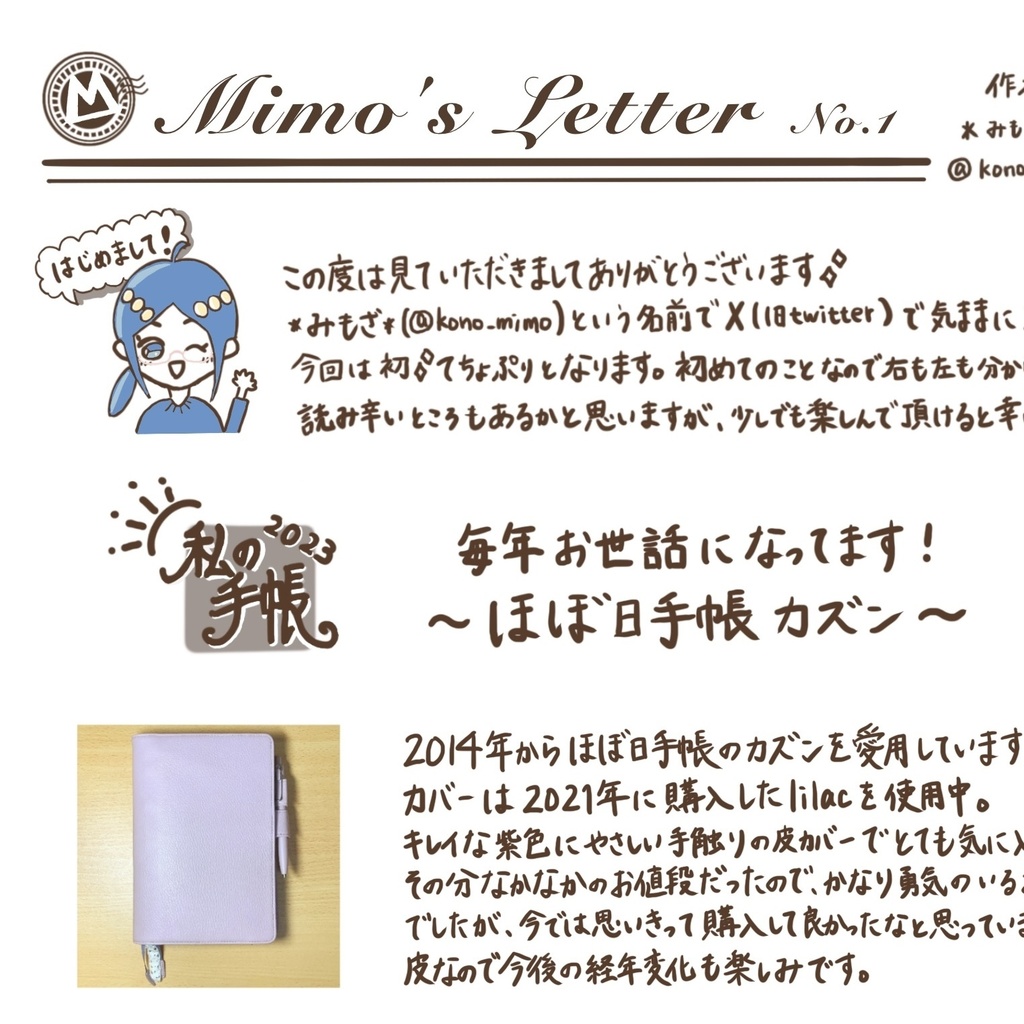 M
Mimo's Letter No.1
作
*みも
@kono
はじめまして!
この度は見ていただきましてありがとうございます
*みもざ*(@kono_mimo)という名前でX(旧twitter)で気ままに
今回は初てちょぷりとなります。初めてのことなので右も左も分か
読み辛いところもあるかと思いますが、少しでも楽しんで頂けると幸
2023
私の
手帳
毎年お世話になってます!
〜ほぼ日手帳カズン〜
2014年からほぼ日手帳のカズンを愛用しています
カバーは2021年に購入したlilacを使用中。
キレイな紫色にやさしい手触りの皮カバーでとても気に入
その分なかなかのお値段だったので、かなり勇気のいる
でしたが、今では思いきって購入して良かったなと思っていま
皮なので今後の経年変化も楽しみです。